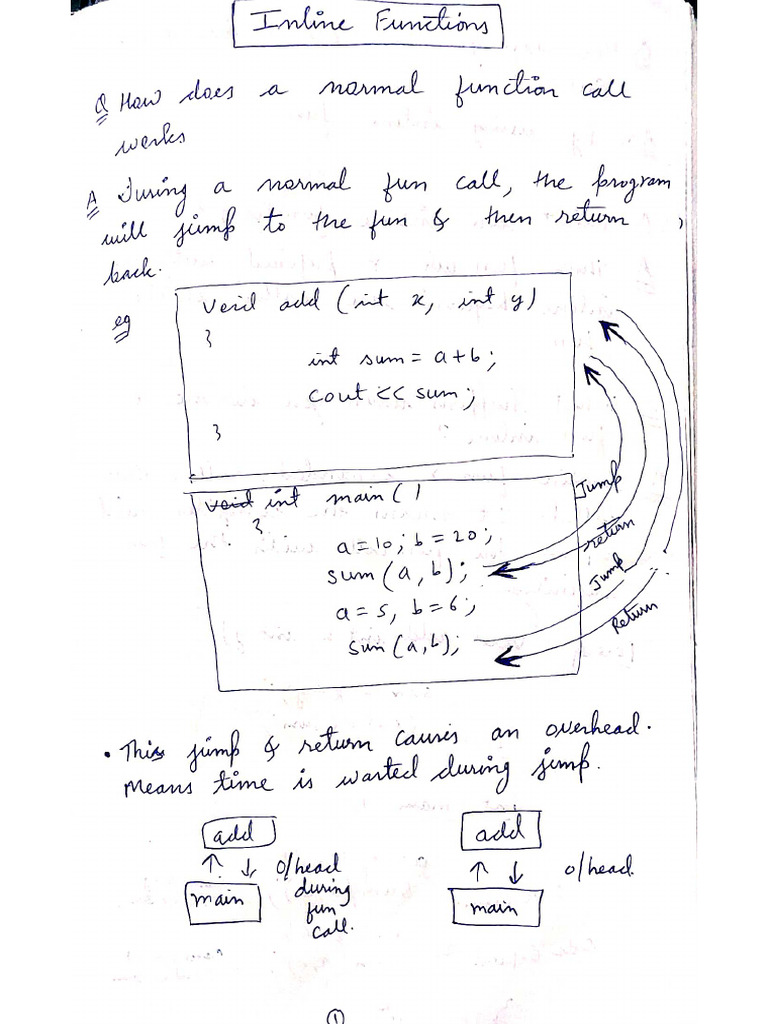 Inline Functions
Q How does a normal function call
works
A During a normal fun call, the program
will jump to the fun & then return
back.
eg
void add (int x, int y)
{
int sum = a+b;
cout << sum;
}
void int main ( )
{
a=10; b=20;
sum (a, b);
a=5, b=6;
sum (a,b);
Jump
return
Jump
Return
• This jump & return causes an overhead.
Means time is wasted during jump.
add
↑ ↓ o/head
during
fun
call.
main
add
↑ ↓ o/head.
main
1